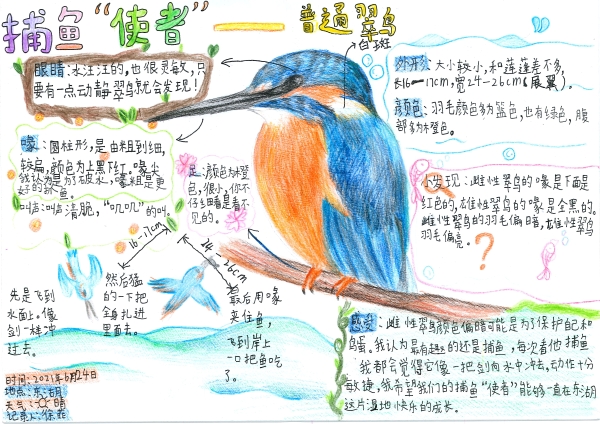 捕鱼“使者”——普通翠鸟
白斑
眼睛:水汪汪的,也很灵敏,只
要有一点动静翠鸟就会发现!
外形:大小较小,和莲莲差不多,
长16-17cm,宽24-26cm(展翼)。
颜色:羽毛颜色多为蓝色,也有绿色,腹
部多为橙色。
喙:圆柱形,是由粗到细,
较扁,颜色为上黑下红。喙尖
我认为是为了破水,嘴粗是更
好的衔鱼。
叫声:叫声清脆,“叽叽”的叫。
足:颜色为橙
色,很小,你不
仔细看是看不
见的。
小发现:雌性翠鸟的喙是下面是
红色的,雄性翠鸟的喙是全黑的。
雌性翠鸟的羽毛偏暗,雄性翠鸟
羽毛偏亮。
16-17cm
24-26cm
先是飞到
水面上。像
剑一样冲
过去。
然后猛
的一下把
全身扎进
里面去。
最后用喙
夹住鱼,
飞到岸上
一口把鱼吃
了。
感受:雌性翠鸟颜色偏暗可能是为了保护自己和
鸟蛋。我认为最有趣的还是捕鱼,每次看他捕鱼
我都会觉得它像一把剑向水中冲去,动作十分
敏捷。我希望我们的捕鱼“使者”能够一直在东湖
这片湿地快乐的成长。
时间:2021年6月24日
地点:东湖
天气:晴
记录人:徐菲